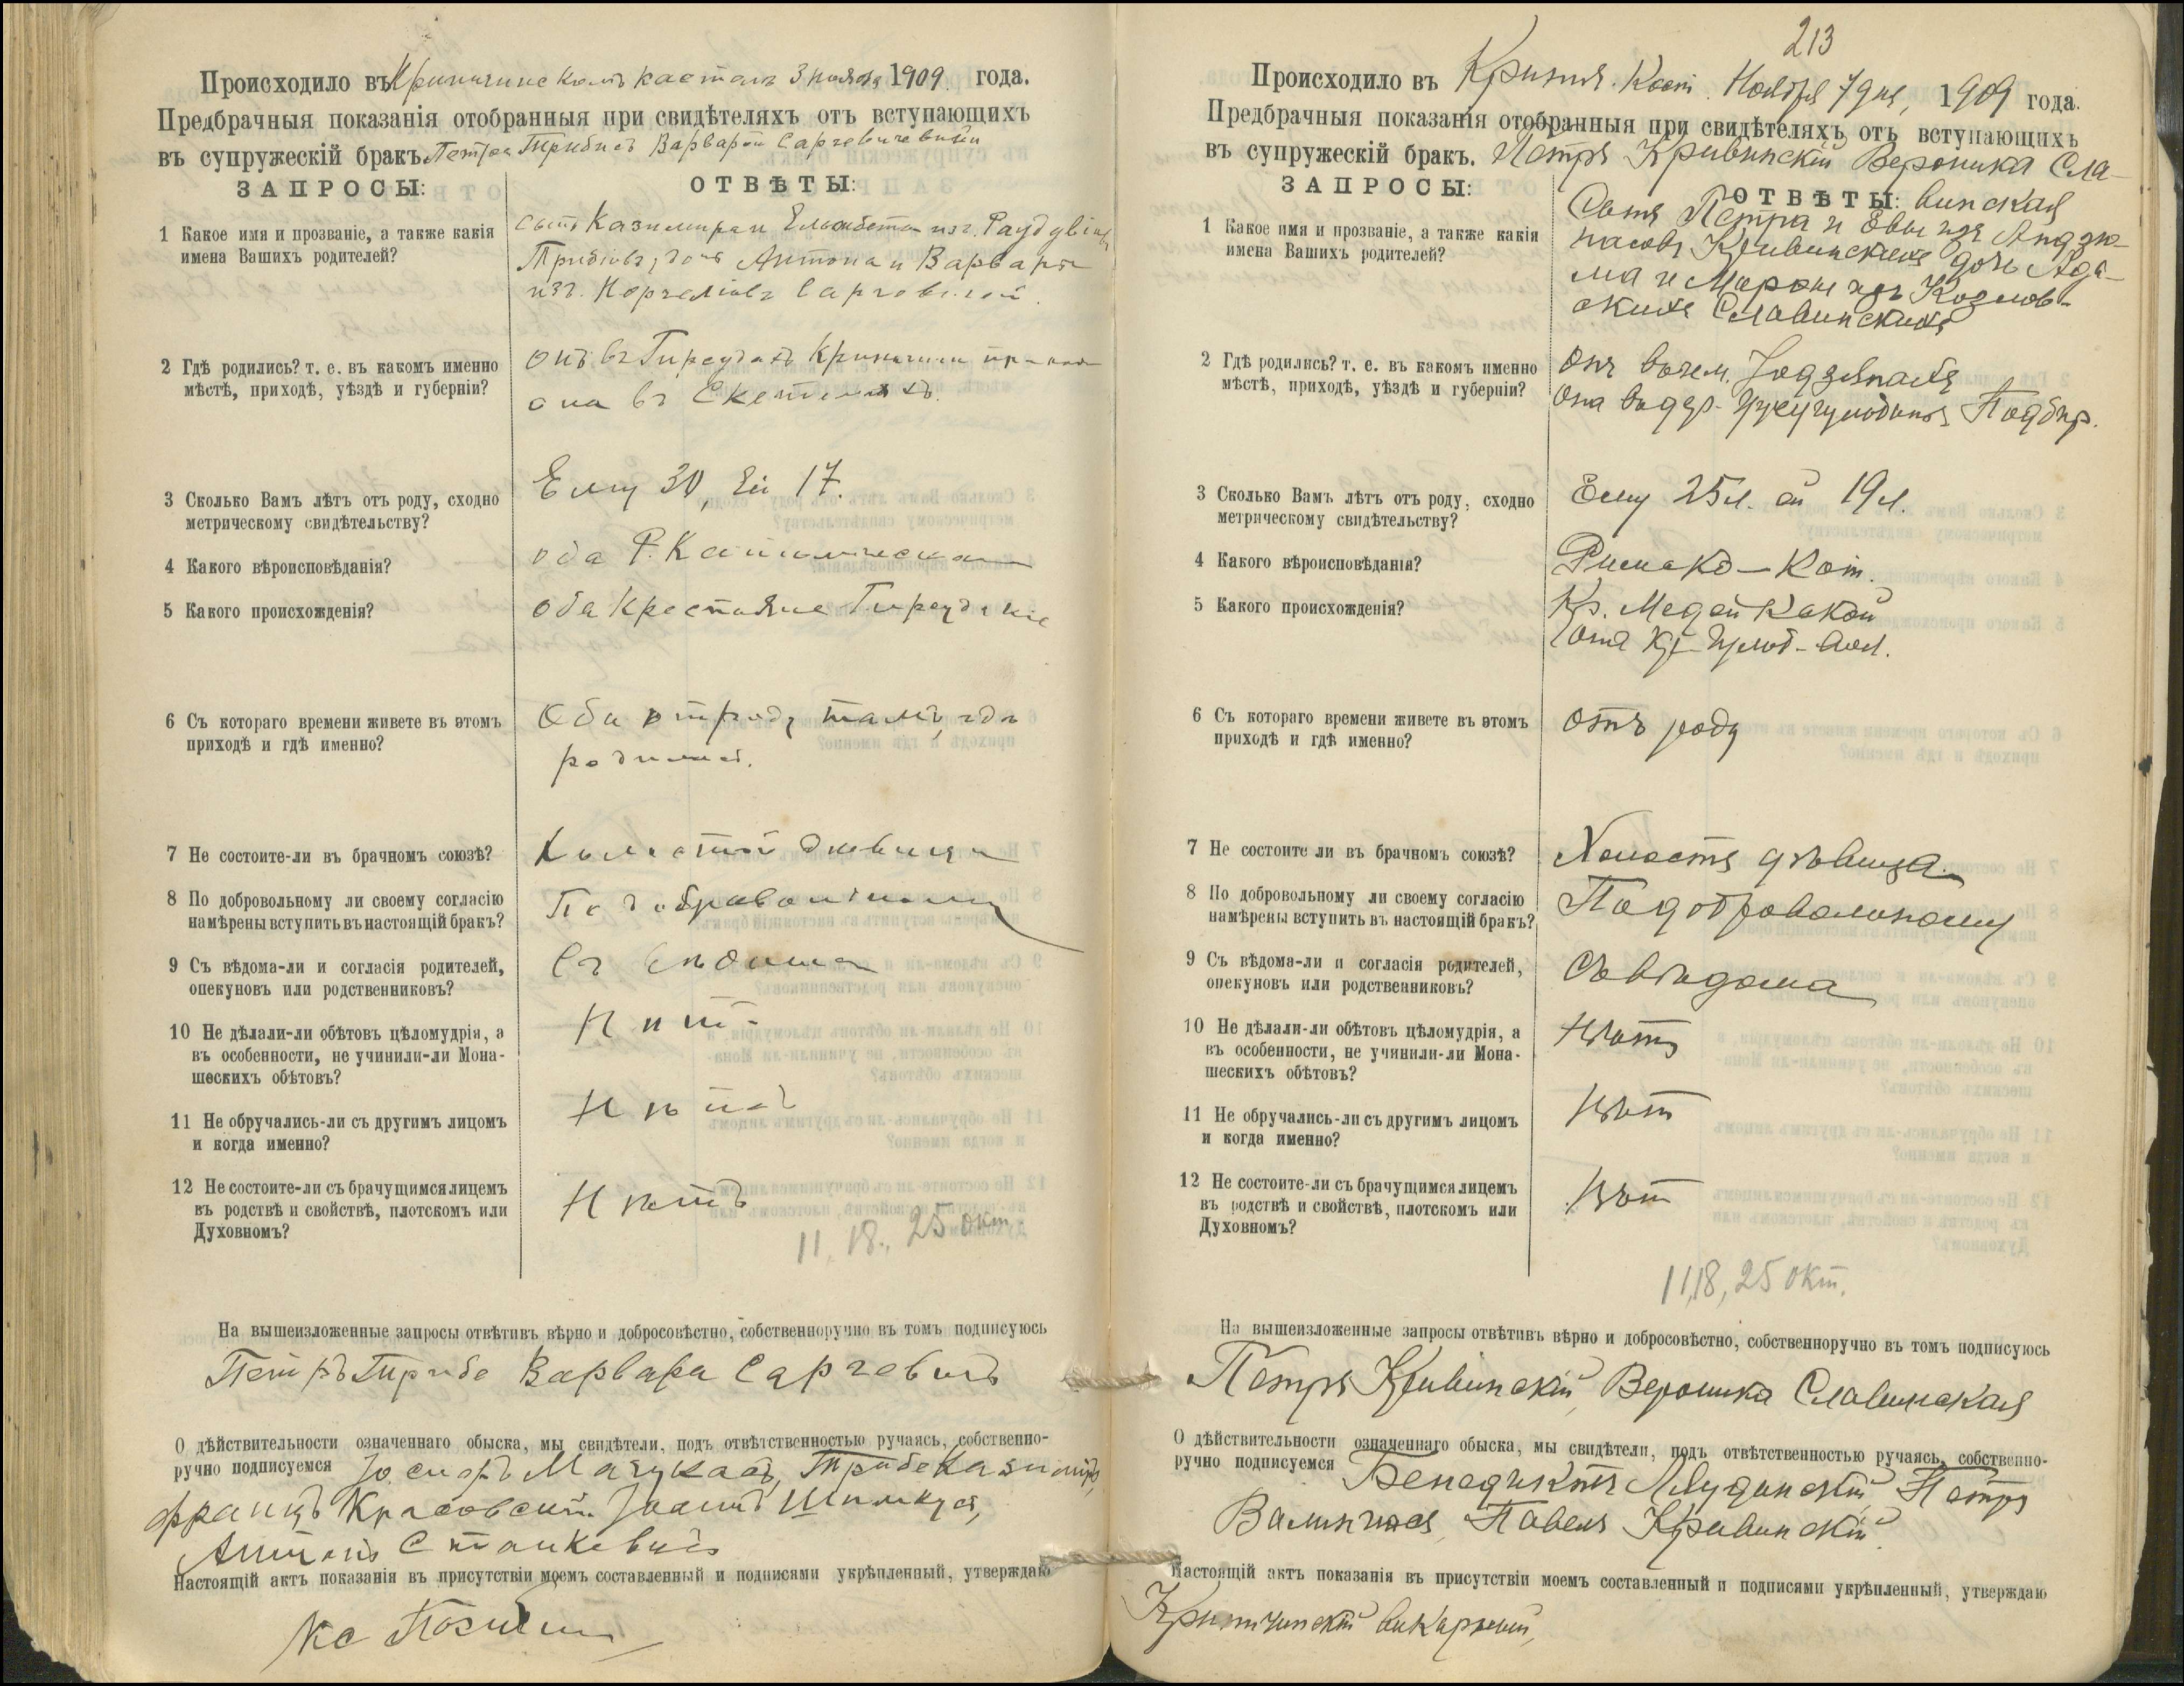 Происходило въ Криничинскомъ костелѣ 3 ноября 1909 года.
Предбрачныя показанія отобранныя при свидѣтеляхъ отъ вступающихъ
въ супружескій бракъ. Петра Трибисъ Варварой Саргевичевной
ЗАПРОСЫ:
ОТВѢТЫ:
1 Какое имя и прозваніе, а также какія
имена Вашихъ родителей?
сынъ Казимира и Ельжбета изъ
дочь Антона и Варвары
изъ
2 Гдѣ родились? т. е. въ какомъ именно
мѣстѣ, приходѣ, уѣздѣ и губерніи?
онъ въ
она въ
3 Сколько Вамъ лѣтъ отъ роду, сходно
метрическому свидѣтельству?
Ему 30, Ей 17.
4 Какого вѣроисповѣданія?
оба Р. Католическаго
5 Какого происхожденія?
оба Крестьяне
6 Съ котораго времени живете въ этомъ
приходѣ и гдѣ именно?
Оба отъ роду тамъ, гдѣ
родились.
7 Не состоите-ли въ брачномъ союзѣ?
Холостой дѣвица
8 По добровольному ли своему согласію
намѣрены вступить въ настоящій бракъ?
По добровольному
9 Съ вѣдома-ли и согласія родителей,
опекуновъ или родственниковъ?
Съ вѣдома
10 Не дѣлали-ли обѣтовъ цѣломудрія, а
въ особенности, не учинили-ли Мона-
шескихъ обѣтовъ?
Нѣтъ
11 Не обручались-ли съ другимъ лицомъ
и когда именно?
Нѣтъ
12 Не состоите-ли съ брачущимся лицемъ
въ родствѣ и свойствѣ, плотскомъ или
Духовномъ?
Нѣтъ
11, 18, 25 окт.
На вышеизложенные запросы отвѣтивъ вѣрно и добросовѣстно, собственноручно въ томъ подписуюсь
Петръ Трибе Варвара Саргевичъ
О дѣйствительности означеннаго обыска, мы свидѣтели, подъ отвѣтственностью ручаясь, собственно-
ручно подписуемся Іосифъ Мачукасъ, Трибе Казимиръ,
Францъ Красовскій Іосифъ Шимкусъ,
Антонъ Станкевичъ
Настоящій актъ показанія въ присутствіи моемъ составленный и подписями укрѣпленный, утверждаю
Кс
213
Происходило въ Кринич. Кост. Ноября 7 дня, 1909 года.
Предбрачныя показанія отобранныя при свидѣтеляхъ отъ вступающихъ
въ супружескій бракъ. Петръ Кривинскій Вероника Сла-
винская
ЗАПРОСЫ:
ОТВѢТЫ:
1 Какое имя и прозваніе, а также какія
имена Вашихъ родителей?
Сынъ Петра и Евы изъ Андзю-
насовъ Кривинскихъ дочь Ада-
ма и Марьи изъ Козлов-
скихъ Славинскихъ
2 Гдѣ родились? т. е. въ какомъ именно
мѣстѣ, приходѣ, уѣздѣ и губерніи?
Онъ въ
Она въ дер. Подбир.
3 Сколько Вамъ лѣтъ отъ роду, сходно
метрическому свидѣтельству?
Ему 25 л. ей 19 л.
4 Какого вѣроисповѣданія?
Римско-Кат.
5 Какого происхожденія?
Кр.
6 Съ котораго времени живете въ этомъ
приходѣ и гдѣ именно?
отъ роду
7 Не состоите ли въ брачномъ союзѣ?
Холостъ дѣвица
8 По добровольному ли своему согласію
намѣрены вступить въ настоящій бракъ?
По добровольному
9 Съ вѣдома-ли и согласія родителей,
опекуновъ или родственниковъ?
Съ вѣдома
10 Не дѣлали-ли обѣтовъ цѣломудрія, а
въ особенности, не учинили-ли Мона-
шескихъ обѣтовъ?
Нѣтъ
11 Не обручались-ли съ другимъ лицомъ
и когда именно?
Нѣт
12 Не состоите-ли съ брачущимся лицемъ
въ родствѣ и свойствѣ, плотскомъ или
Духовномъ?
Нѣт
11, 18, 25 окт.
На вышеизложенные запросы отвѣтивъ вѣрно и добросовѣстно, собственноручно въ томъ подписуюсь
Петръ Кривинскій, Вероника Славинская
О дѣйствительности означеннаго обыска, мы свидѣтели, подъ отвѣтственностью ручаясь, собственно-
ручно подписуемся Бенедиктъ Петръ
Павелъ Кривинскій
Настоящій актъ показанія въ присутствіи моемъ составленный и подписями укрѣпленный, утверждаю
Криничинскій викарный,